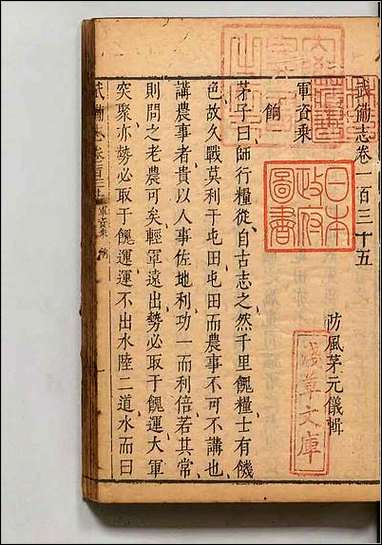 武備志卷一百三十五
防風茅元儀輯
軍資乘
餉一
茅子曰師行糧從自古志之然千里餽糧士有饑
色故久戰莫利于屯田屯田而農事不可不講也
講農事者貴以人事佐地利功一而利倍若其常
則問之老農可矣輕軍遠出勢必取于餽運大軍
突聚亦勢必取于餽運運不出水陸二道水而曰
日本
政府
圖書
淺草文庫